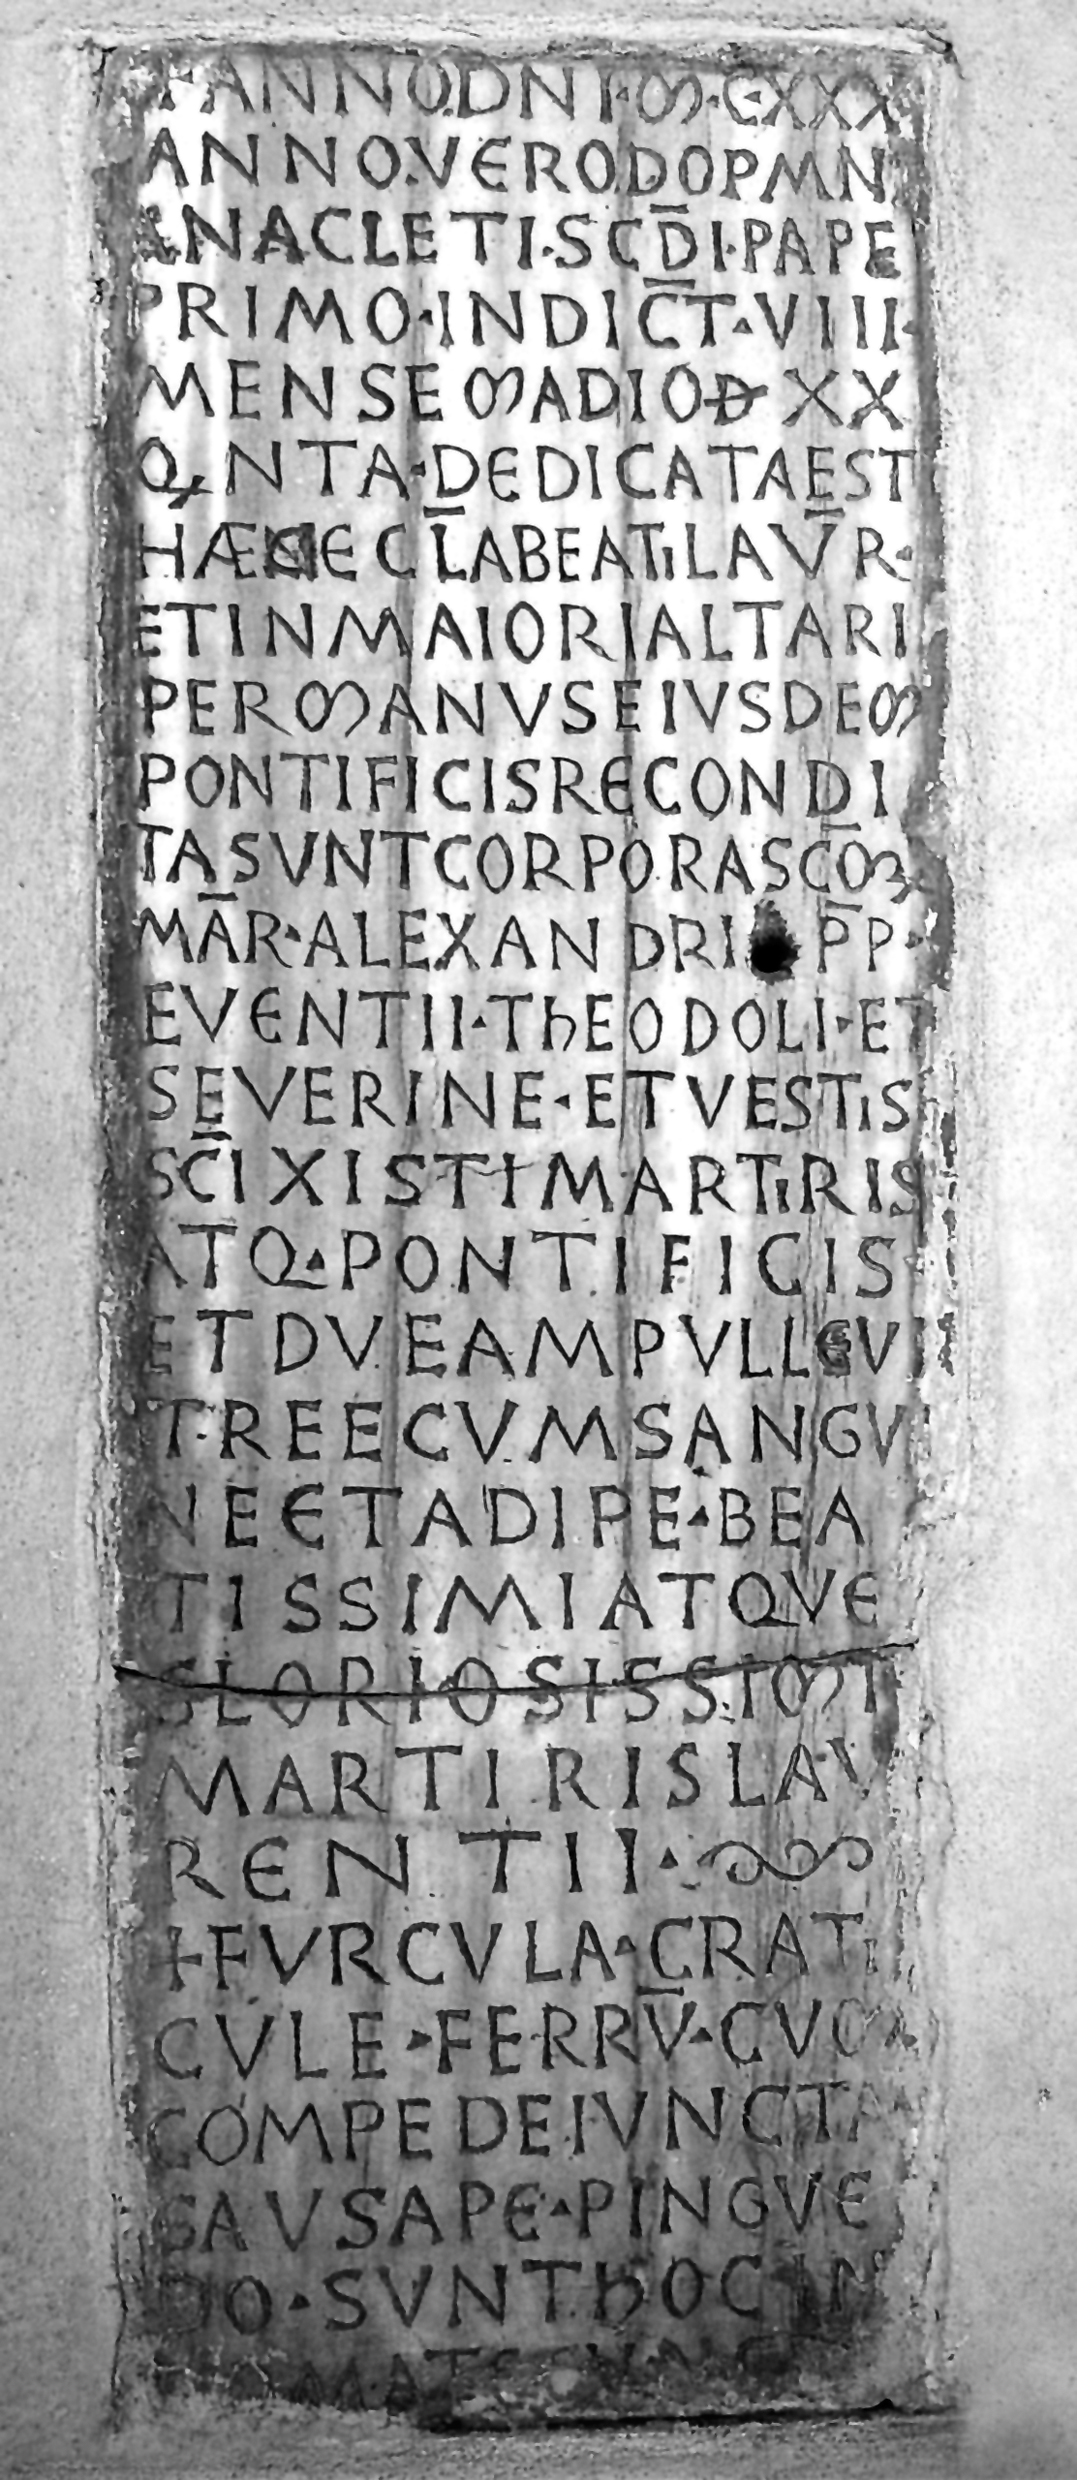 + ANNO.DNI·M·C·XXX
ANNO.VERO.DOPMN
ANACLETI·SCDI·PAPE
PRIMO·INDICT·VIII·
MENSE MADIO D XX
QNTA·DEDICATA EST
HÆC ECLA BEATI LAVR·
ET IN MAIORI ALTARI
PER MANVS EIVSDEM
PONTIFICIS RECONDI
TA SVNT CORPORA SCOM
MAR·ALEXANDRI PP·
EVENTII·ThEODOLI·ET
SEVERINE·ET VESTIS
SCI XISTI MARTIRIS
ATQ·PONTIFICIS
ET DVE AMPVLLE VI
TREE CVM SANGVI
NE ET ADIPE·BEA
TISSIMI ATQVE
GLORIOSISSIMI
MARTIRIS LAV
RENTII·
+ FVRCVLA·CRATI
CVLE·FERRV·CVM
COMPEDE IVNCTA
SAVSAPE·PINGVE
DO·SVNT hOC IN